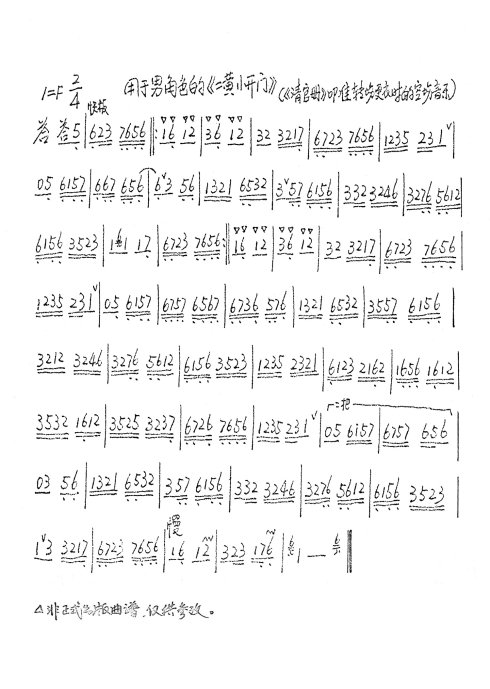 用于男角色的《二黄小开门》(《清官册》叩准转步更衣时的空场音乐)
1=F 2/4 快板
答 答5 | 6723 7656 ‖: 16 12 | 36 12 | 32 3217 | 6723 7656 | 1235 231ˇ |
05 6157 | 667 656 | 6ˇ3 56 | 1321 6532 | 3ˇ57 6156 | 332 3246 | 3276 5612 |
6156 3523 | 161 17 | 6723 7656 :‖ 16 12 | 36 12 | 32 3217 | 6723 7656 |
1235 231ˇ | 05 6157 | 6757 6567 | 6736 576 | 1321 6532 | 3557 6156 |
3212 3246 | 3276 5612 | 6156 3523 | 1235 2321 | 6123 2162 | 1656 1612 |
3532 1612 | 3525 3237 | 6726 7656 | 1235 231ˇ | 05 6157 | 6757 656 |
03 56 | 1321 6532 | 357 6156 | 332 3246 | 3276 5612 | 6156 3523 |
慢
1ˇ3 3217 | 6723 7656 | 16 12 | 323 176 | 6 1 — 6 ‖
△非正式出版曲谱,仅供参改。